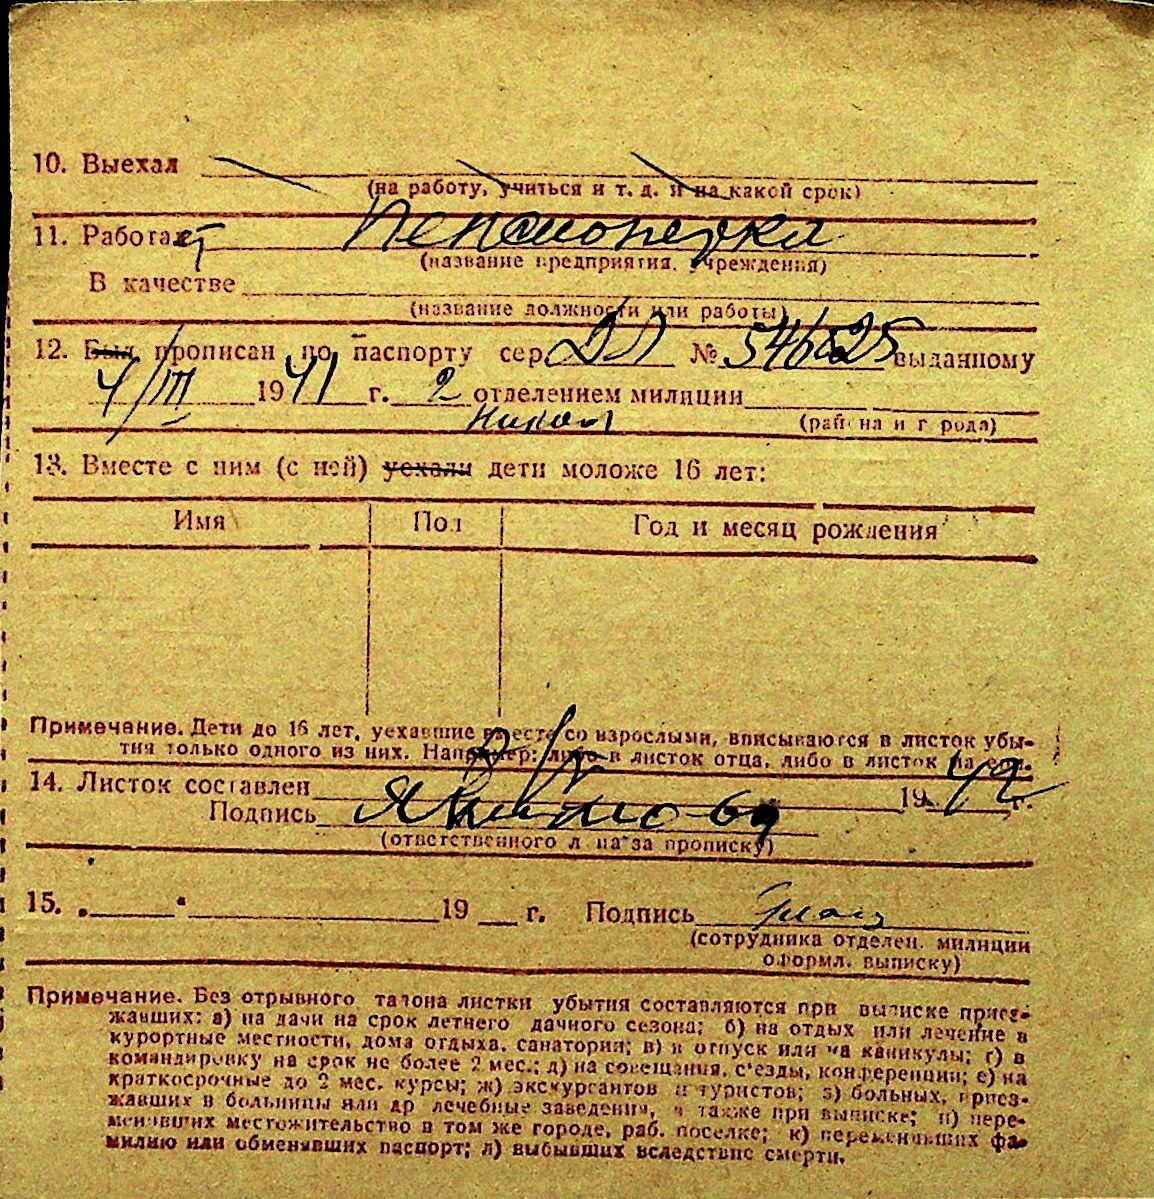 10. Выехал
(на работу, учиться и т. д. и на какой срок)
11. Работает Пенсионерка
(название предприятия, учреждения)
В качестве
(название должности или работы)
12. Был прописан по паспорту сер. № 546525 выданному
4/III 1941 г. 2 отделением милиции
(района и города)
13. Вместе с ним (с ней) уехали дети моложе 16 лет:
Имя Пол Год и месяц рождения
Примечание. Дети до 16 лет, уехавшие вместе со взрослыми, вписываются в листок убы-
тия только одного из них. Например: либо в листок отца, либо в листок
14. Листок составлен 1942 г.
Подпись
(ответственного лица за прописку)
15. „ " 19 г. Подпись
(сотрудника отделен. милиции
оформл. выписку)
Примечание. Без отрывного талона листки убытия составляются при выписке приез-
жавших: а) на дачи на срок летнего дачного сезона; б) на отдых или лечение в
курортные местности, дома отдыха, санатории; в) в отпуск или на каникулы; г) в
командировку на срок не более 2 мес.; д) на совещания, с'езды, конференции; е) на
краткосрочные до 2 мес. курсы; ж) экскурсантов и туристов; з) больных, приез-
жавших в больницы или др лечебные заведения, а также при выписке; и) пере-
менивших местожительство в том же городе, раб. поселке; к) переменивших фа-
милию или обменявших паспорт; л) выбывших вследствие смерти.